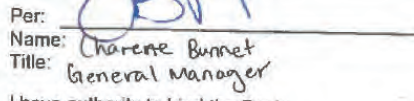 Per:
Name: Charene Bunnet
Title: General Manager